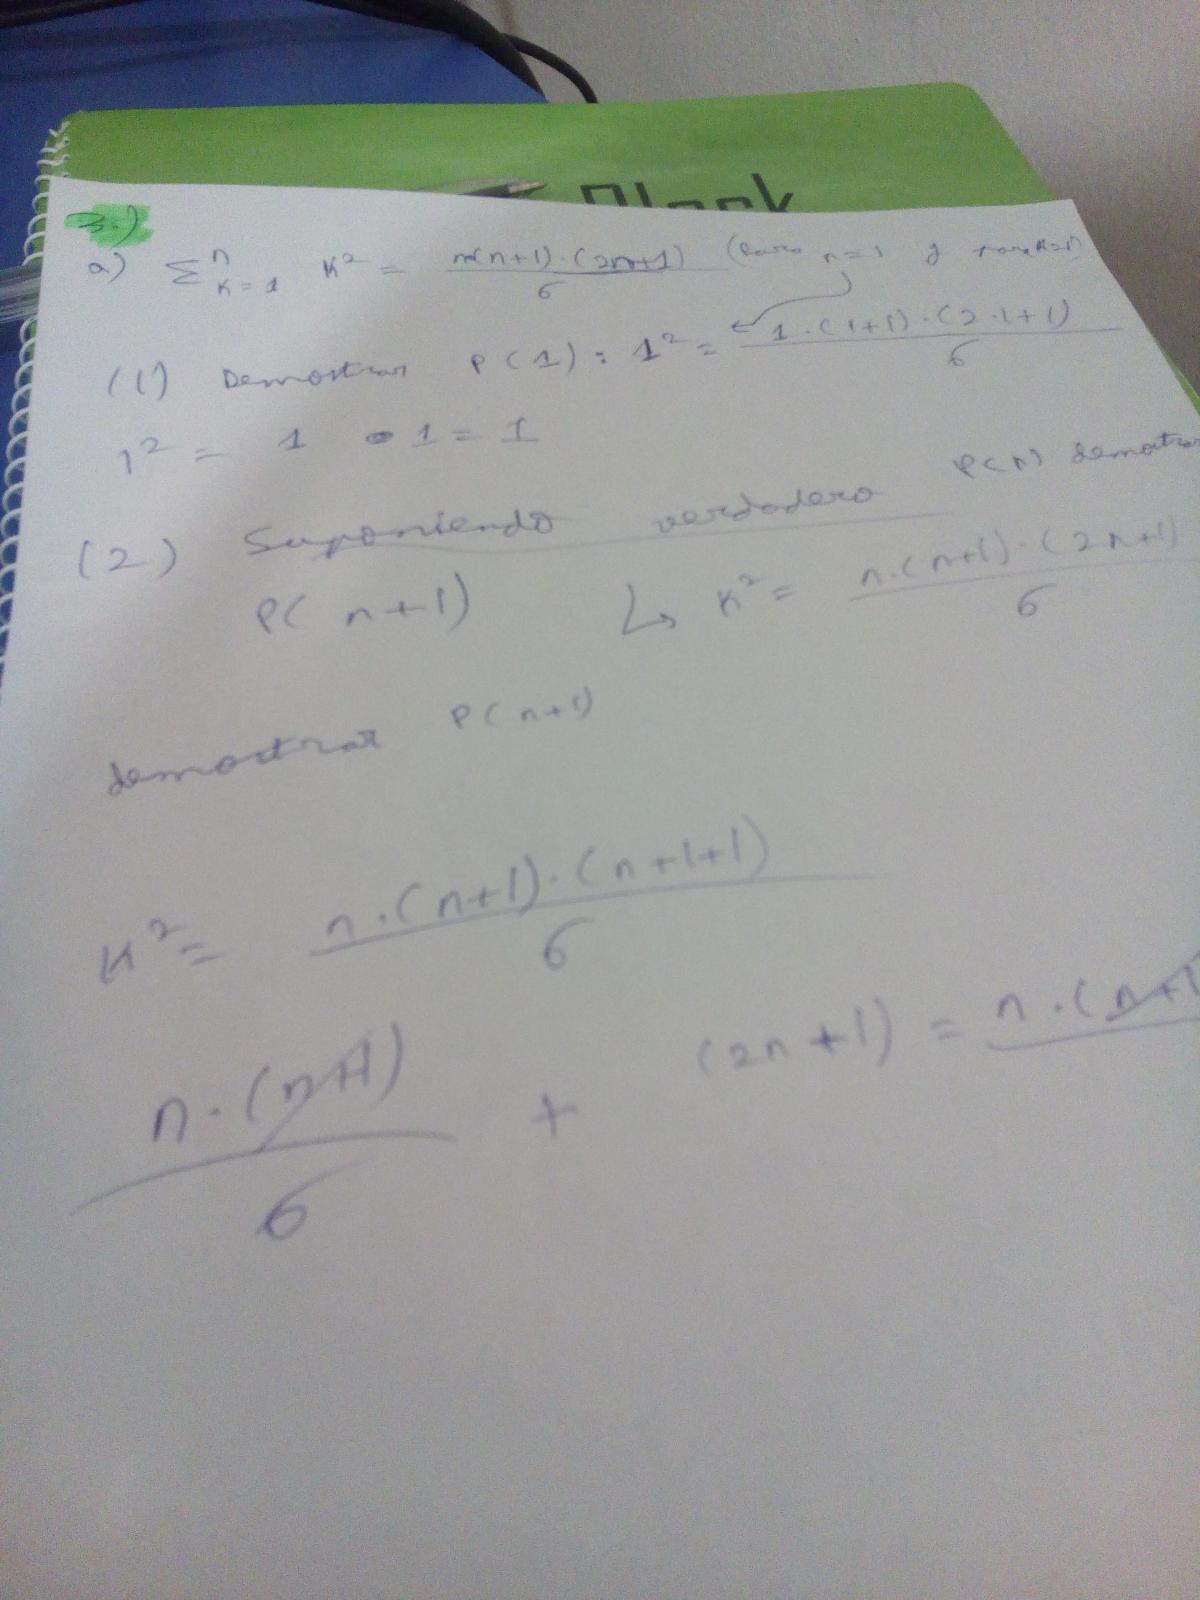 Block
3.)
a) Σ^n_{K=1} K² = n(n+1)·(2n+1) / 6 (Para n=1 y para K=1)
(1) Demostrar P(1): 1² = 1·(1+1)·(2·1+1) / 6
1² = 1 1 = 1
(2) Suponiendo verdadero P(n) demostrar
P(n+1) ↳ K² = n·(n+1)·(2n+1) / 6
demostrar P(n+1)
K² = n·(n+1)·(n+1+1) / 6
n·(n+1) / 6 + (2n+1) = n·(n+1